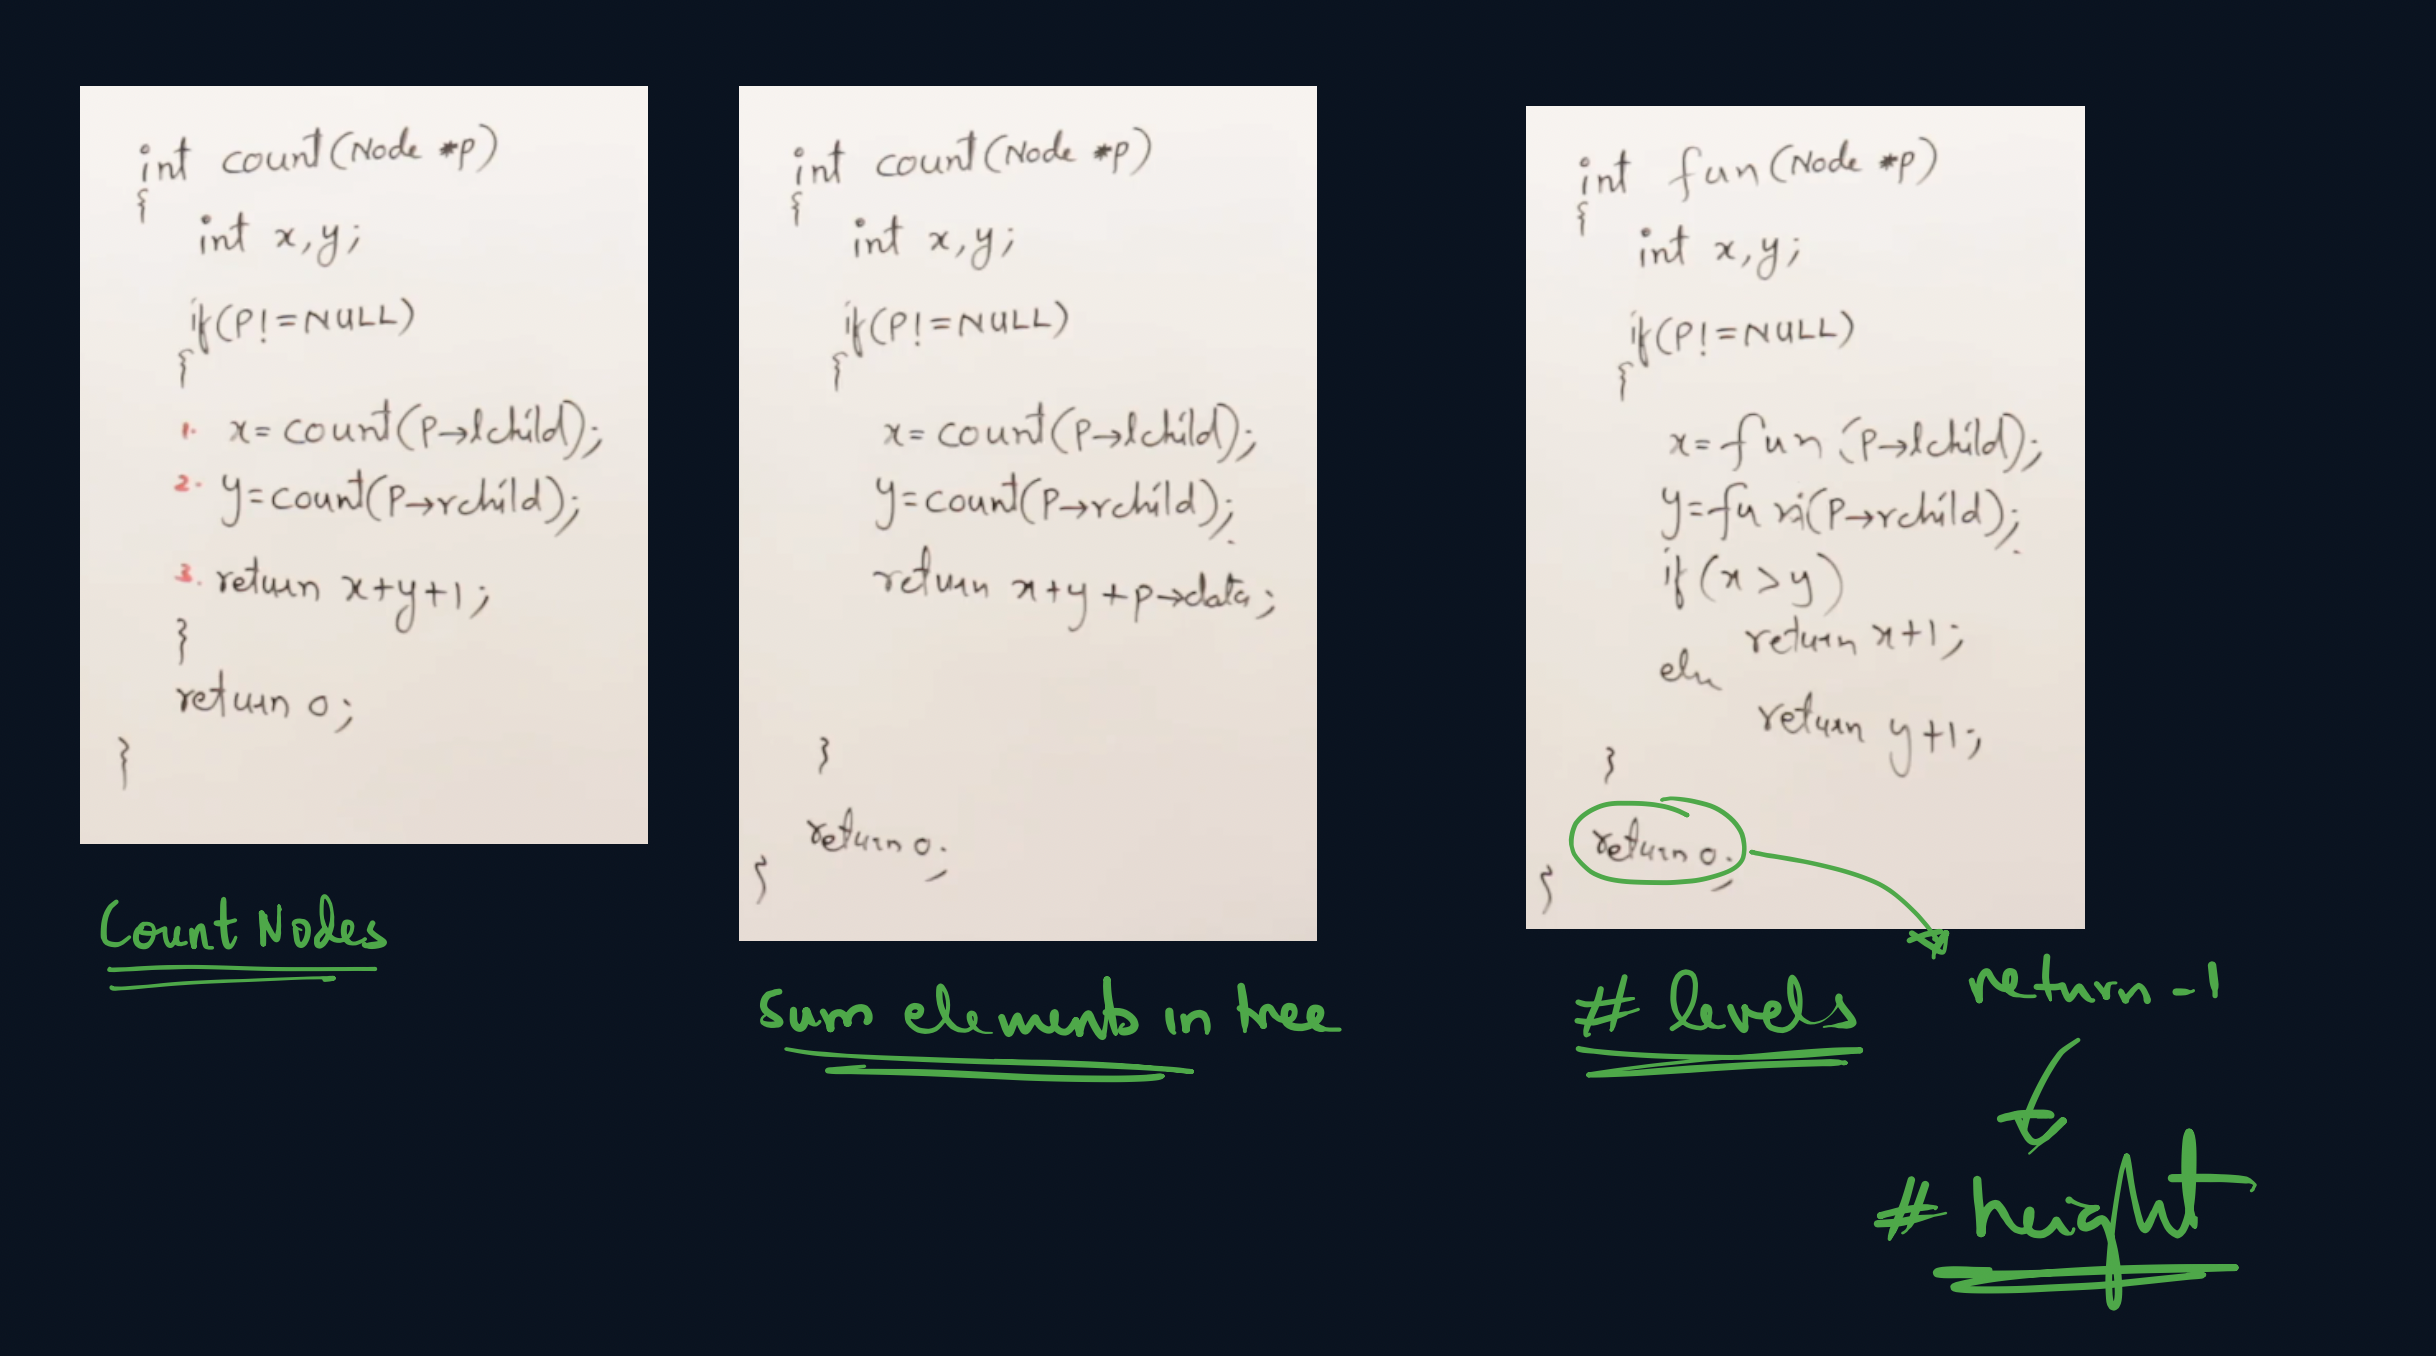 int count(Node *p)
{
int x,y;
if(P!=NULL)
{
1. x=count(P→lchild);
2. y=count(P→rchild);
3. return x+y+1;
}
return 0;
}
Count Nodes
int count(Node *p)
{
int x,y;
if(P!=NULL)
{
x=count(P→lchild);
y=count(P→rchild);
return x+y+p→data;
}
return 0;
}
Sum elements in tree
int fun(Node *p)
{
int x,y;
if(P!=NULL)
{
x=fun(P→lchild);
y=fun(P→rchild);
if(x>y)
return x+1;
else
return y+1;
}
return 0;
}
# levels
return -1
# height